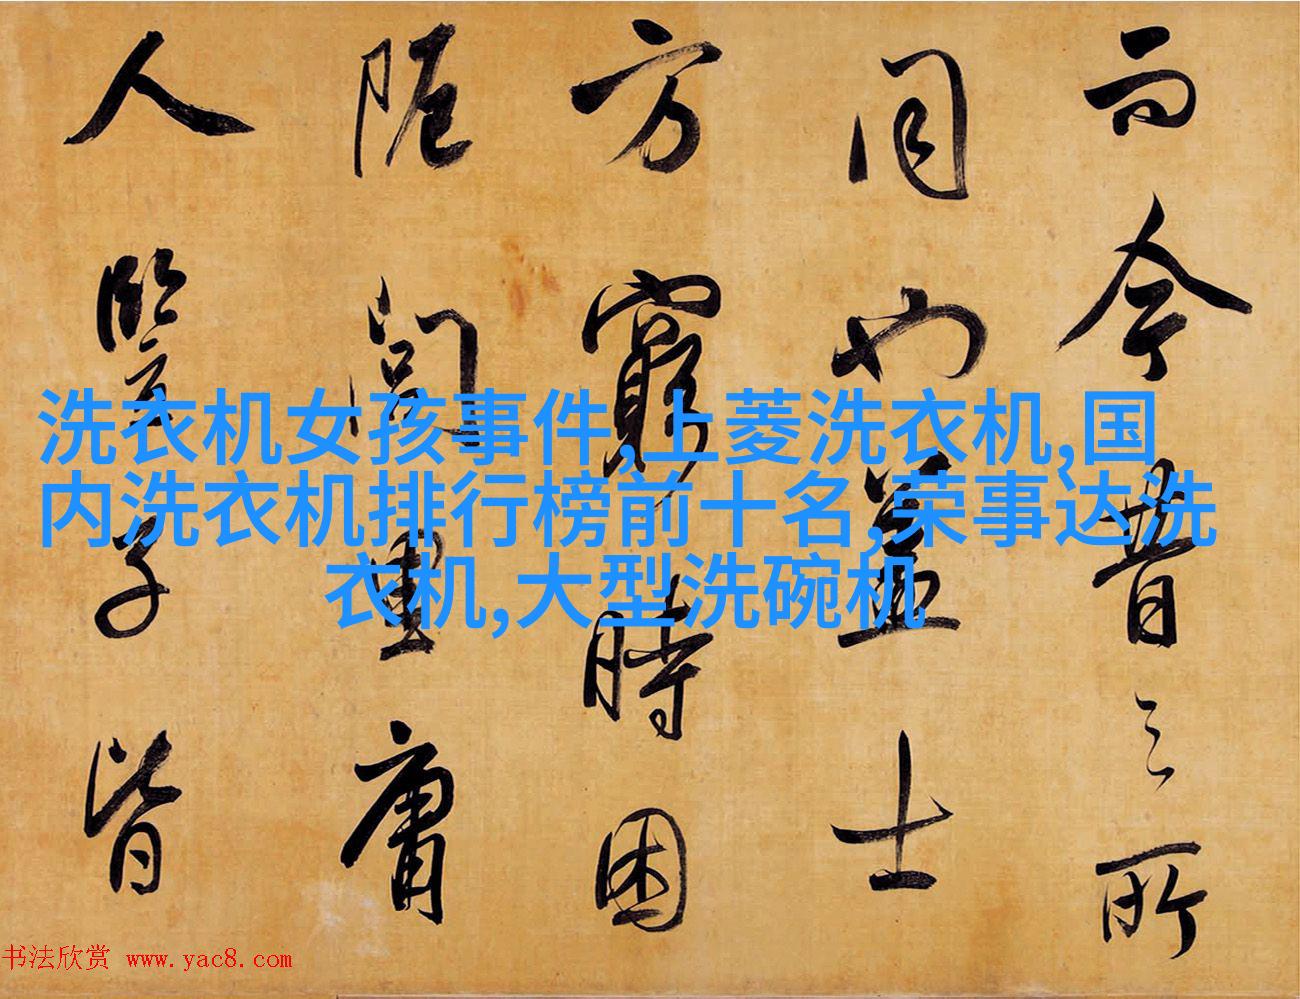 而今昔之所
同也蓋士
方窮時困
阨閭里庸
人豎子皆
洗衣机女孩事件,上菱洗衣机,国
内洗衣机排行榜前十名,荣事达洗
衣机,大型洗碗机
书法欣赏 www.yac8.com